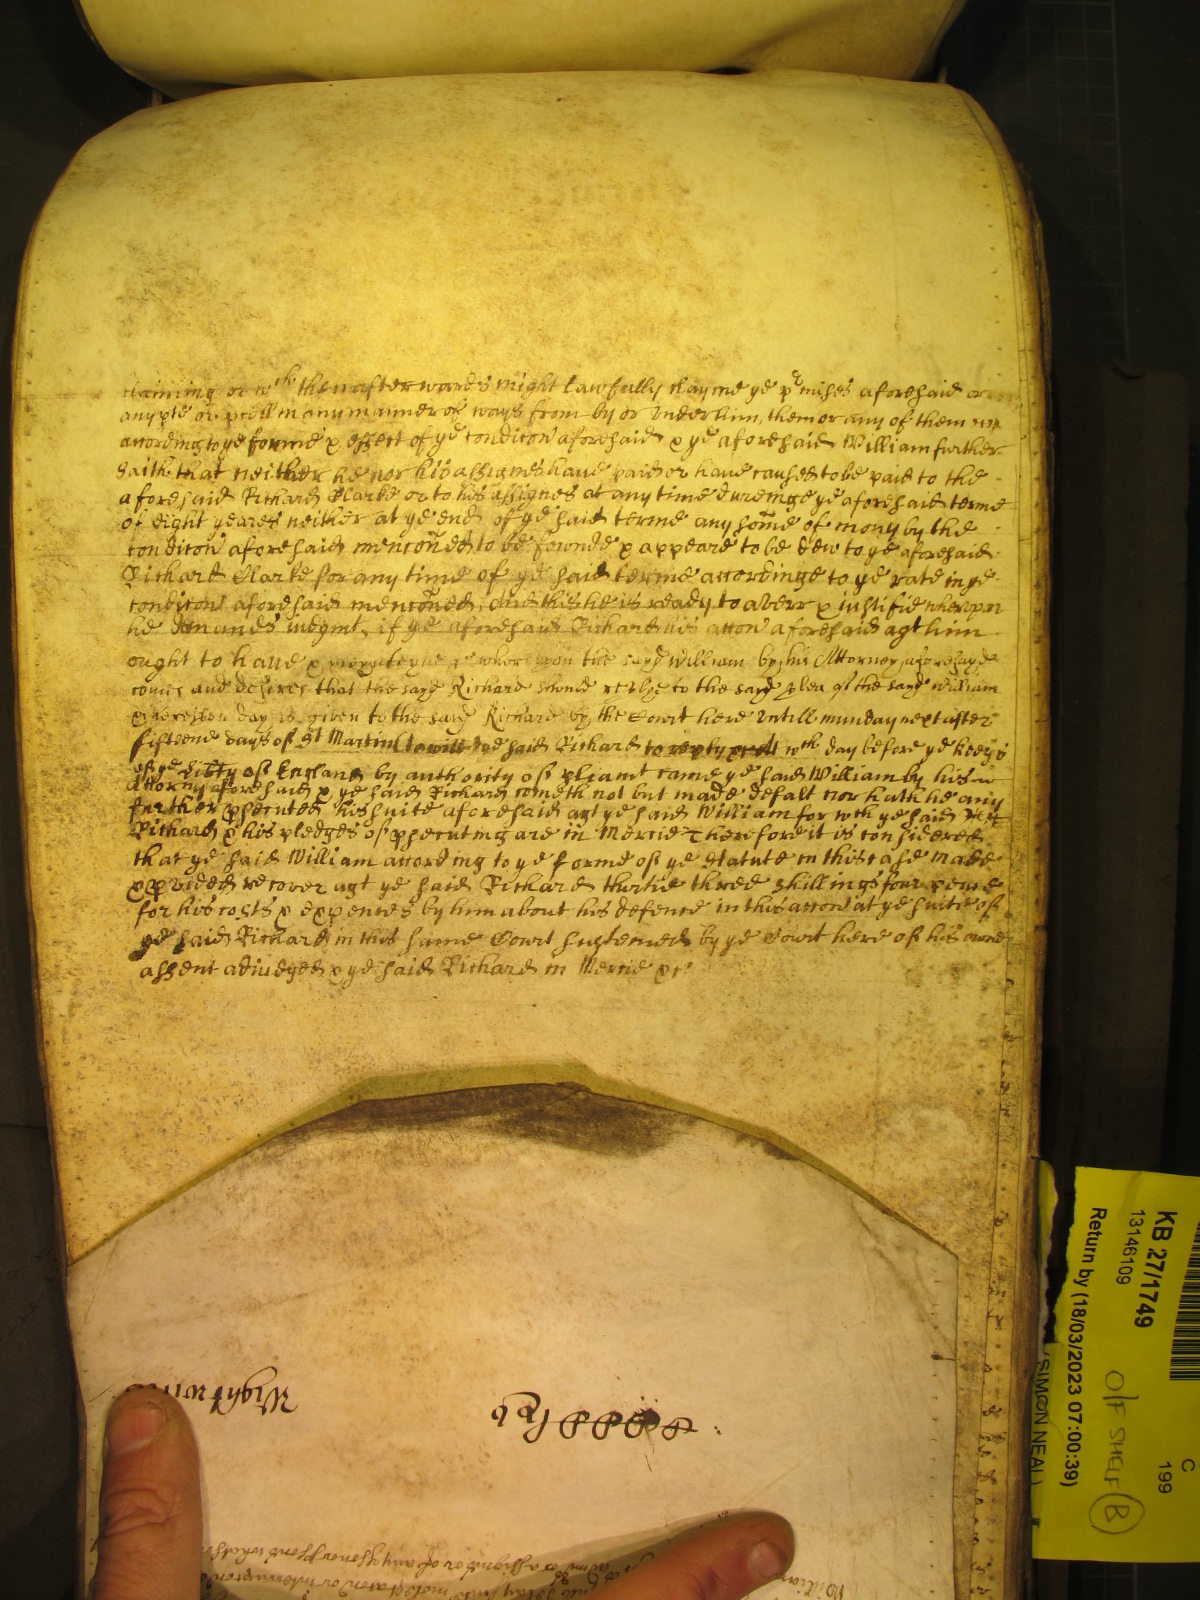 claiming or wth them afterwards might lawfully clayme ye pmises aforesaid or
any pte or pcell in any manner of ways from by or under him, them or any of them
according to ye forme & effect of ye condicon aforesaid & ye aforesaid William further
saith that neither he nor his assignes have paid or have caused to be paid to the
aforesaid Richard Clarke or to his assignes at any time dureinge ye aforesaid terme
of eight yeares neither at ye end of ye said terme any some of mony by the
condicon aforesaid menconed to be fownde & appeare to be dew to ye aforesaid
Richard Clarke for any time of ye said terme accordinge to ye rate in ye
condicon aforesaid menconed, and this he is ready to averr & iustifie wherupon
he demands iudgmt, if ye aforesaid Richard his accon aforesaid agt him
ought to have & whereupon the sayd William by his Attorney aforesayd
comes and desires that the sayd Richard should replye to the sayd plea of the sayd William
& thereupon day is given to the said Richard by the Court here untill munday next after
fifteene days of St Martin to wit ye said Richard to reply wth day before ye keeps
of ye liberty of England by authority of pliamt came ye said William by his
attorny aforesaid & ye said Richard cometh not but made defalt nor hath he any
further psecuted his suite aforesaid agt ye said William for wch ye said
Richard & his pledges of psecuting are in Mercie Therefore it is considered
that ye said William according to ye forme of ye Statute in this case made
& pvided recover agt ye said Richard thirtie three shillings four pence
for his costs & expences by him about his defence in this accon at ye suite of
ye said Richard in this same Court susteined by ye Court here of his owne
assent adiudged & ye said Richard in Mercie &c
Wightwick
KB 27/1749
13146109
Return by (18/03/2023 07:00:39)
(SIMON NEAL)
C
199
O/F SHELF
B